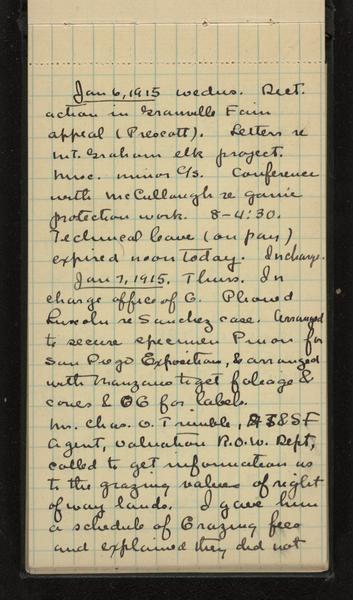 Jan 6, 1915 wedns. Dict.
action in Granville Fain
appeal (Prescott). Letters re
Mt. Graham elk project.
Misc. minor C/s. Conference
with McCullough re game
protection work. 8-4:30.
Technical leave (on pay)
expired noon today. In charge.
Jan 7, 1915. Thurs. In
charge office of G. Phoned
Lincoln re Sanchez case. Arranged
to secure specimen Pinon for
San Diego Exposition, & arranged
with Manzano to get foleage &
cones & OG for labels.
Mr. Chas. O. Trumble, AT&SF
Agent, Valuation R.O.W. Dept,
called to get information as
to the grazing values of right
of way lands. I gave him
a schedule of Grazing fees
and explained they did not